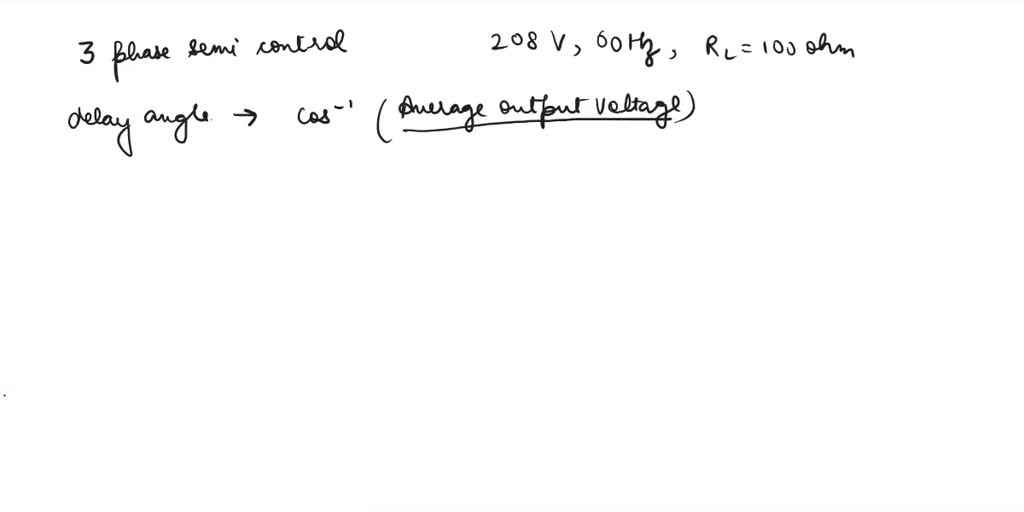 3 phase semi control 208 V, 60Hz, RL = 100 ohm
delay angle → cos⁻¹ (Average output voltage)